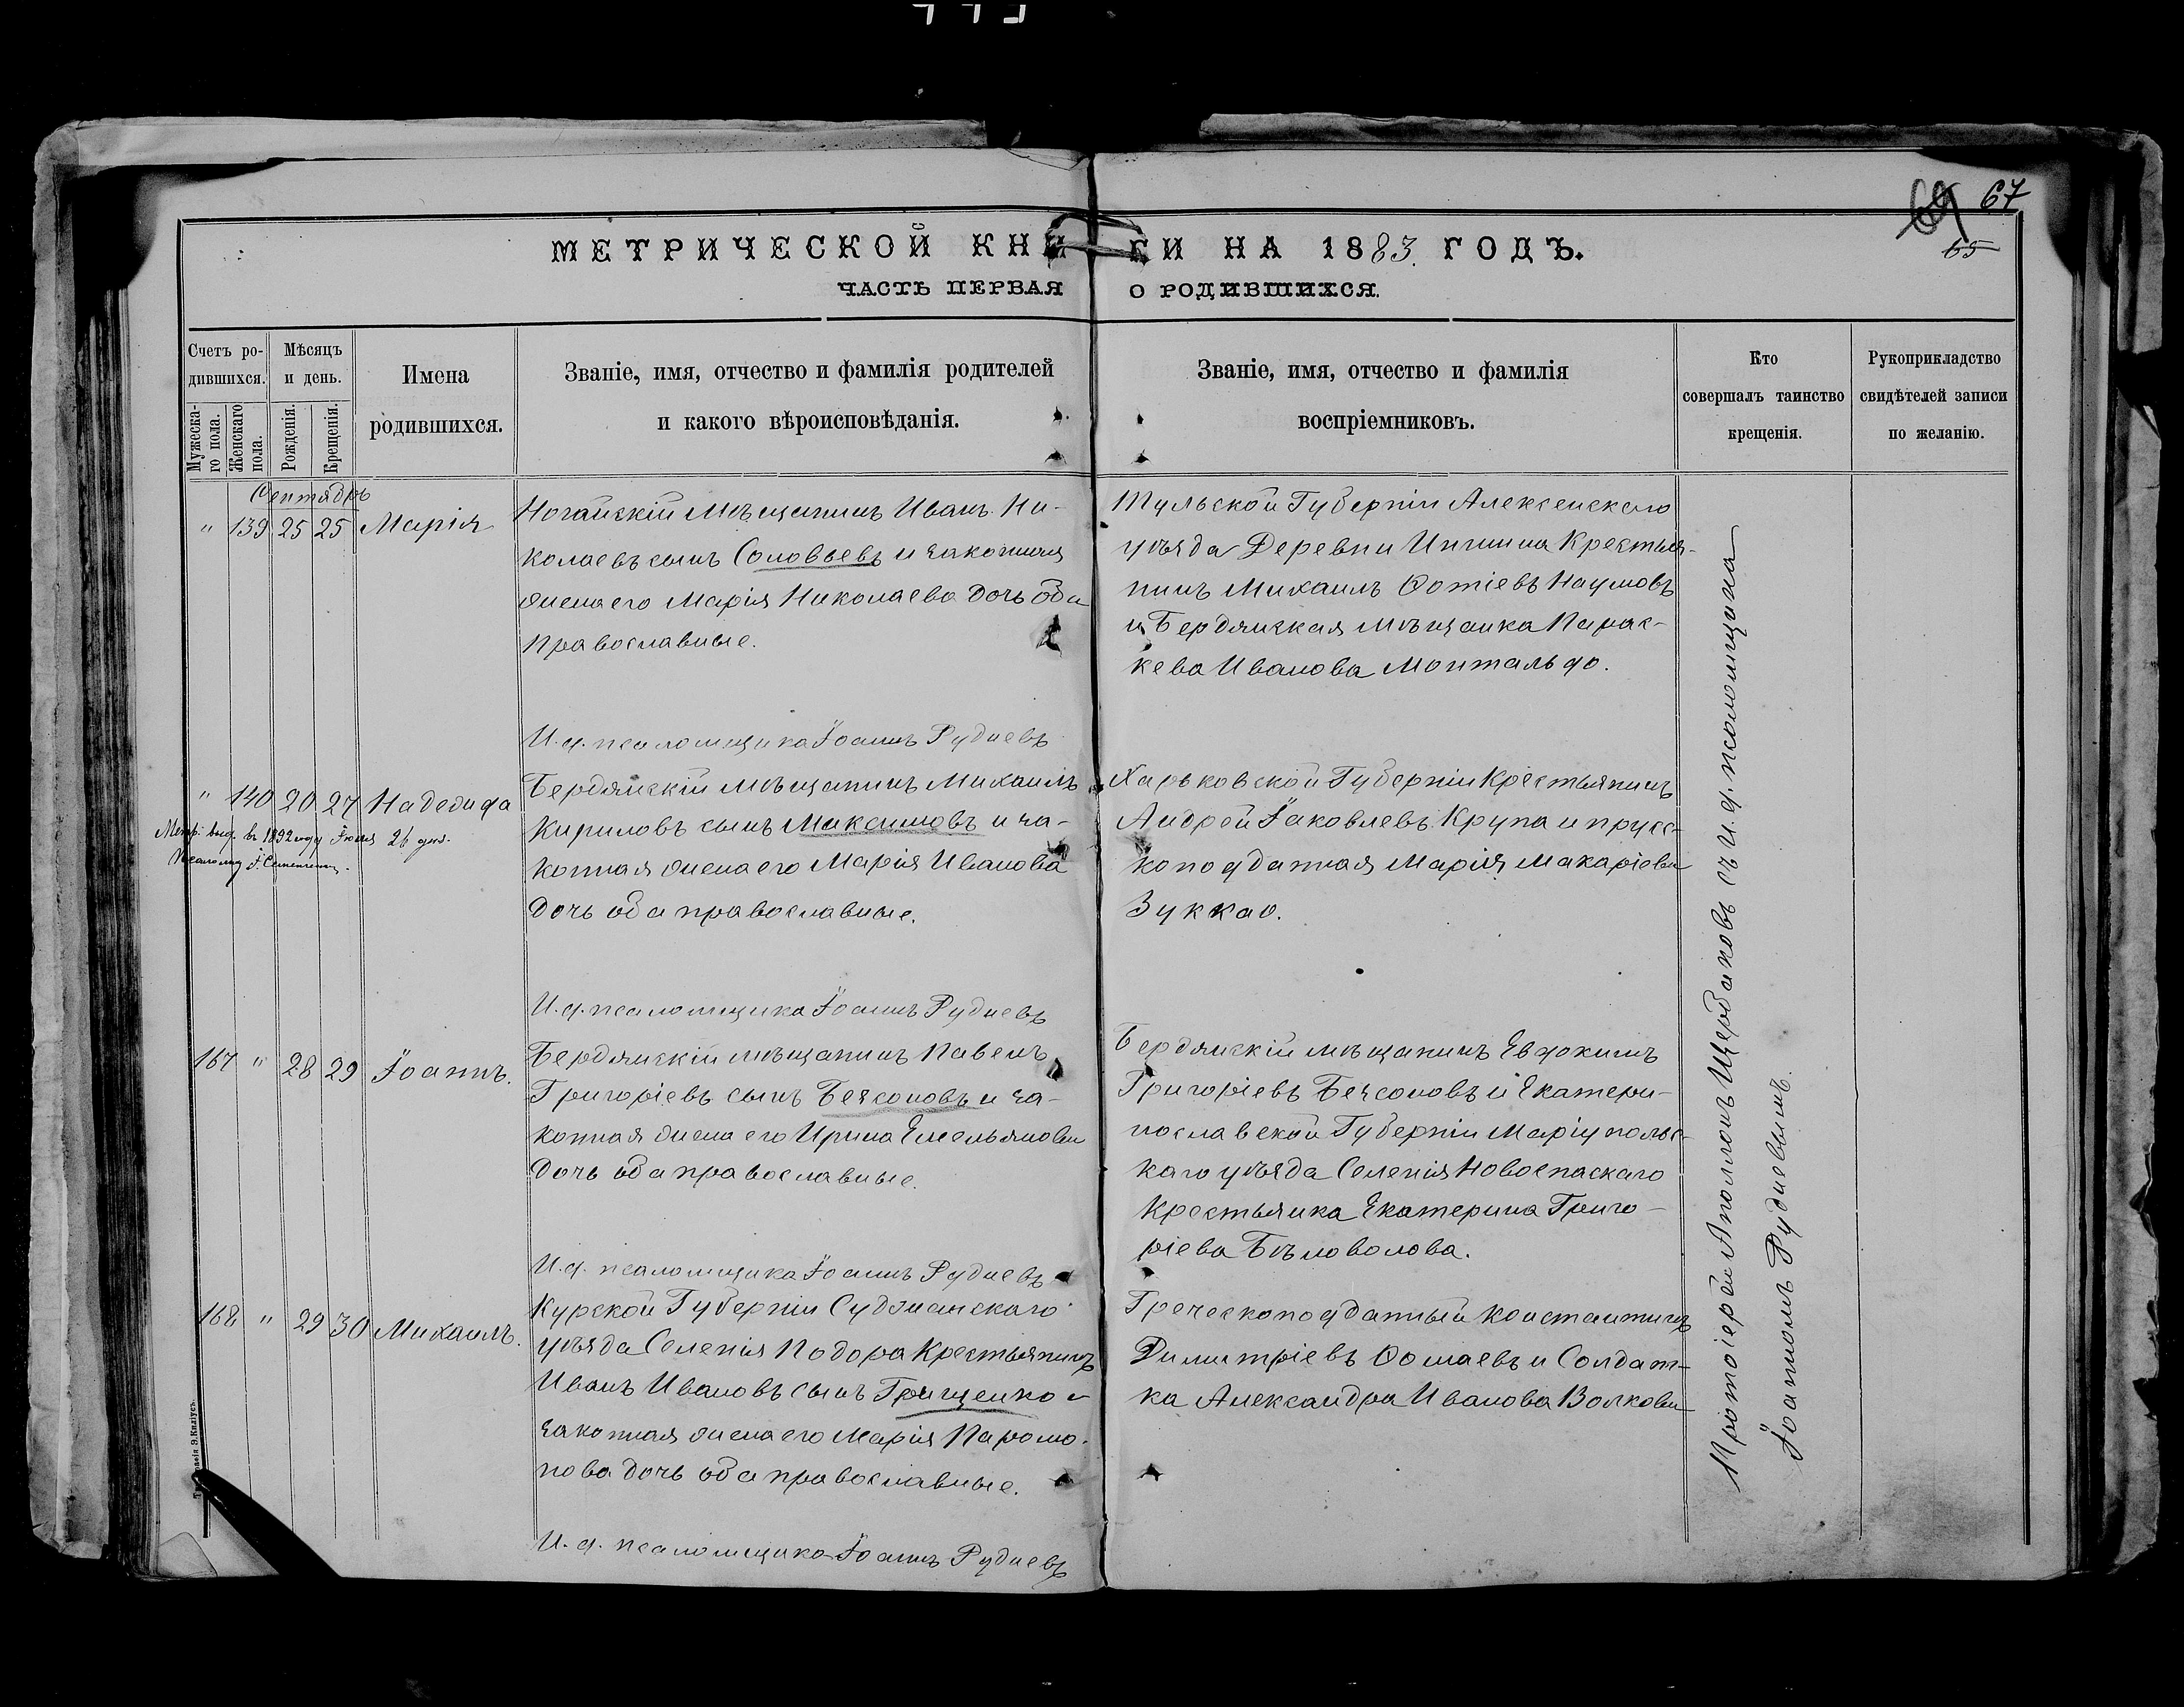 67
69
65
МЕТРИЧЕСКОЙ КНИГИ НА 1883 ГОДЪ.
ЧАСТЬ ПЕРВАЯ О РОДИВШИХСЯ.
Счетъ ро-
дившихся.
Мужеска-
го пола.
Женскаго
пола.
Мѣсяцъ
и день.
Рожденія.
Крещенія.
Имена
родившихся.
Званіе, имя, отчество и фамилія родителей
и какого вѣроисповѣданія.
Званіе, имя, отчество и фамилія
воспріемниковъ.
Кто
совершалъ таинство
крещенія.
Рукоприкладство
свидѣтелей записи
по желанію.
Сентябрь
" 139 25 25 Марія
Ногайскій Мѣщанинъ Иванъ Ни-
колаевъ сынъ Соловьевъ и законная
жена его Марія Николаева дочь оба
православные.
И. д. псаломщика Іоаннъ Рудневъ
Тульской Губерніи Алексенскаго
уѣзда Деревни Крестья-
нинъ Михаилъ Ѳотіевъ Наумовъ
и Бердянская мѣщанка Парас-
кева Иванова Монтальдо.
" 140 20 27 Надежда
Метр. выд. въ 1892 году Іюля 26 дня.
Псаломщ. І.
Бердянскій мѣщанинъ Михаилъ
Кириловъ сынъ Максимовъ и за-
конная жена его Марія Иванова
дочь оба православные.
И. д. псаломщика Іоаннъ Рудневъ
Харьковской Губерніи Крестьянинъ
Андрей Іаковлевъ Крупа и прусс-
коподданная Марія Макаріева
Зуккао.
167 " 28 29 Іоаннъ.
Бердянскій мѣщанинъ Павелъ
Григоріевъ сынъ Безсоновъ и за-
конная жена его Ирина Емельянова
дочь оба православные.
И. д. псаломщика Іоаннъ Рудневъ
Бердянскій мѣщанинъ Евдокимъ
Григоріевъ Безсоновъ и Екатери-
нославской Губерніи Маріуполь-
скаго уѣзда Селенія Новоспаскаго
Крестьянка Екатерина Григо-
ріева Бѣловолова.
168 " 29 30 Михаилъ.
Курской Губерніи Судзанскаго
уѣзда Селенія Подора Крестьянинъ
Иванъ Ивановъ сынъ Грищенко и
законная жена его Марія Парамо-
нова дочь оба православные.
И. д. псаломщика Іоаннъ Рудневъ
Греческоподданный Константинъ
Димитріевъ Ѳомаевъ и Солдат-
ка Александра Иванова Волкова
Протоіерей Аполлонъ Щербаковъ съ И. д. псаломщика
Іоанномъ Рудневымъ.
Типографія Э. Килiусъ.